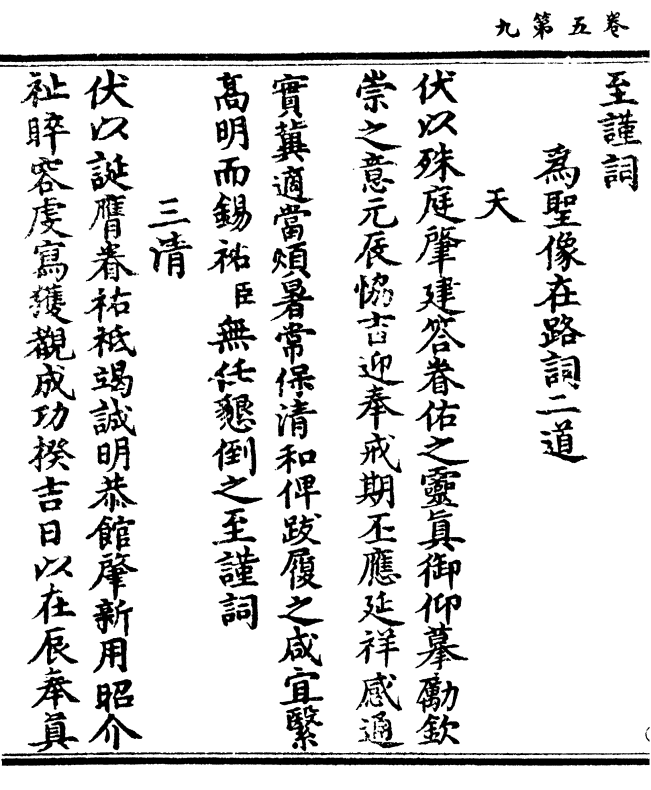 九第五卷
至謹詞
為聖像在路詞二道
天
伏以殊庭肇建答眷佑之靈真御仰摹勵欽
崇之意元辰恊吉迎奉戒期丕應延祥感通
實冀適當煩暑常保清和俾跋履之咸宜繄
髙明而錫祐臣無任懇倒之至謹詞
三清
伏以誕膺眷祐祗竭誠明恭館肇新用昭介
祉睟容虔寫獲觀成功揆吉日以在辰奉真